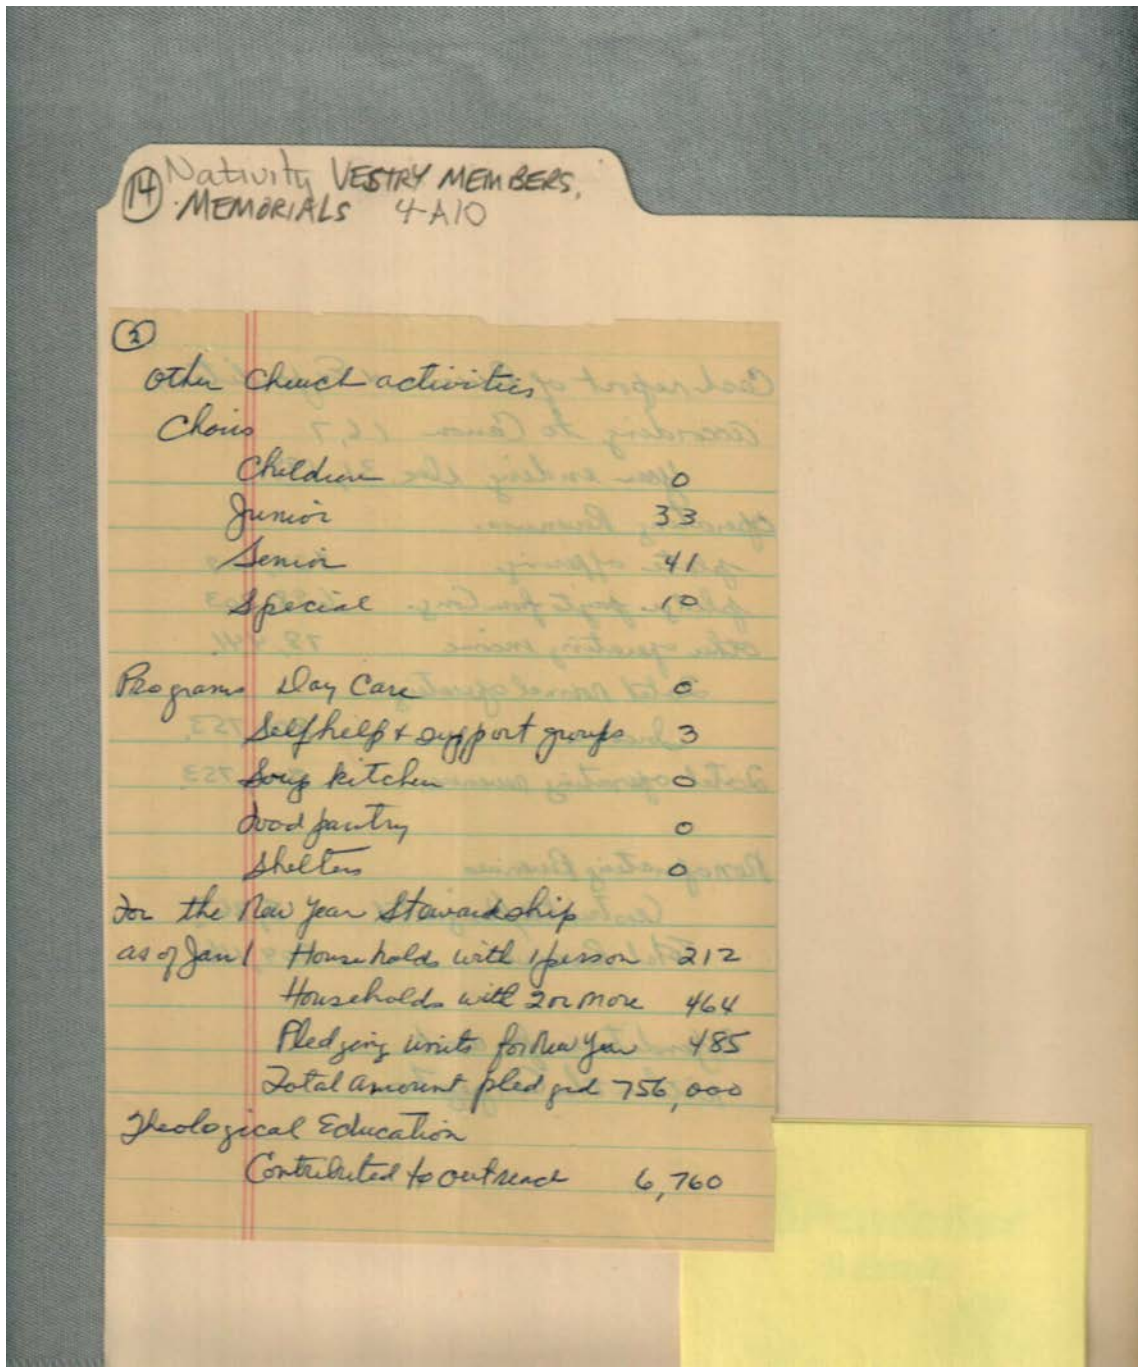 14 Nativity VESTRY MEMBERS,
MEMORIALS 4-A10
2
Other Church activities
Choirs
Children 0
Junior 33
Senior 41
Special 10
Programs Day Care 0
Self help + support groups 3
Soup kitchen 0
Food pantry 0
Shelters 0
For the New Year Stewardship
as of Jan 1 Households with 1 person 212
Households with 2 or more 464
Pledging units for New Year 485
Total amount pledged 756,000
Theological Education
Contributed to outreach 6,760